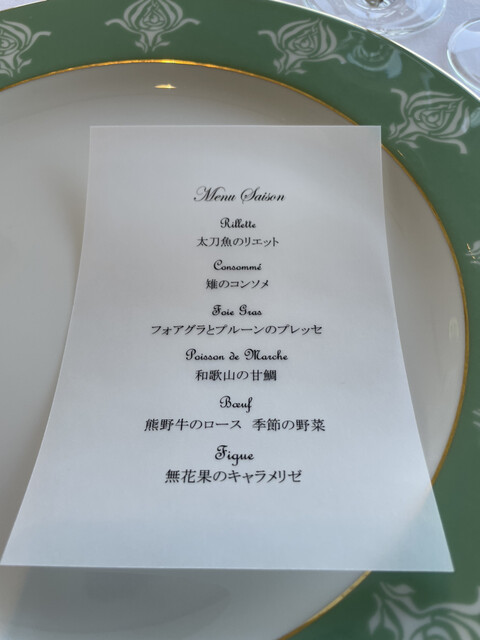 Menu Saison
Rillette
太刀魚のリエット
Consommé
雉のコンソメ
Foie Gras
フォアグラとプルーンのプレッセ
Poisson de Marche
和歌山の甘鯛
Bœuf
熊野牛のロース 季節の野菜
Figue
無花果のキャラメリゼ